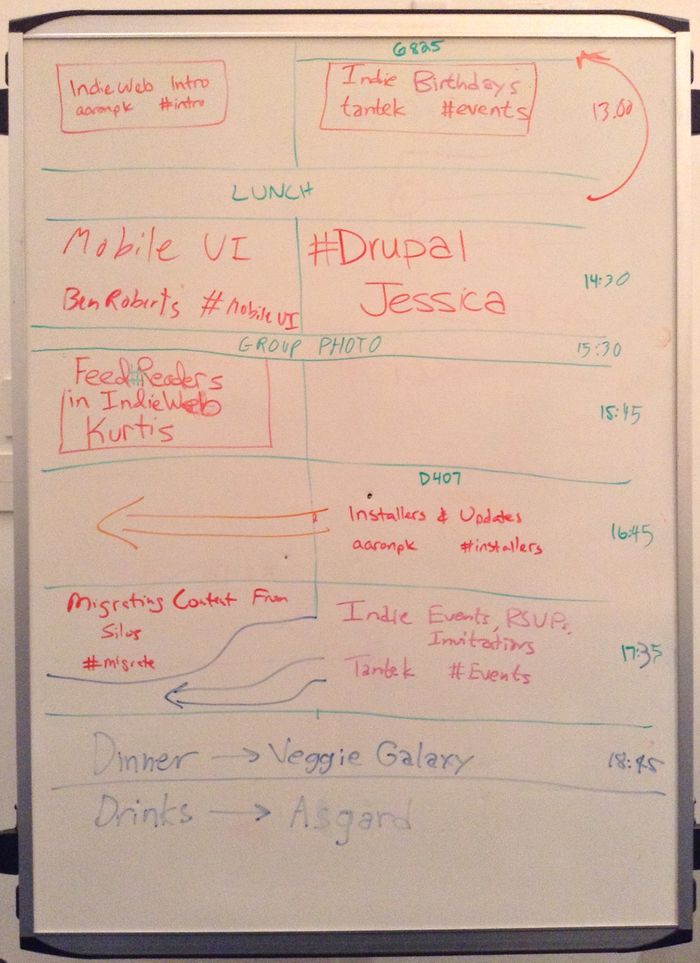 G825
IndieWeb Intro
aaronpk #intro
Indie Birthdays
tantek #events
13.00
LUNCH
Mobile UI
Ben Roberts #MobileUI
#Drupal
Jessica
14:30
GROUP PHOTO
15:30
Feed#Readers
in IndieWeb
Kurtis
15:45
D407
Installers & Updates
aaronpk #installers
16:45
Migrating Content From
Silos
#migrate
Indie Events, RSVPs,
Invitations
Tantek #Events
17:35
Dinner → Veggie Galaxy
18:45
Drinks → Asgard